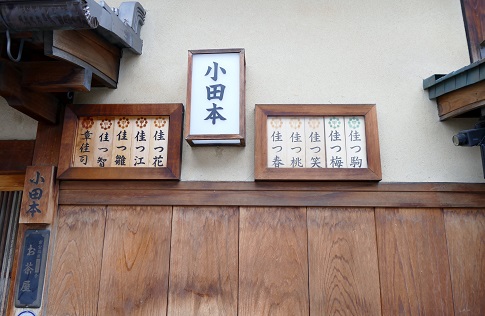 小田本
章佳司
佳つ智
佳つ雛
佳つ江
佳つ花
佳つ春
佳つ桃
佳つ笑
佳つ梅
佳つ駒
小田本
お茶屋